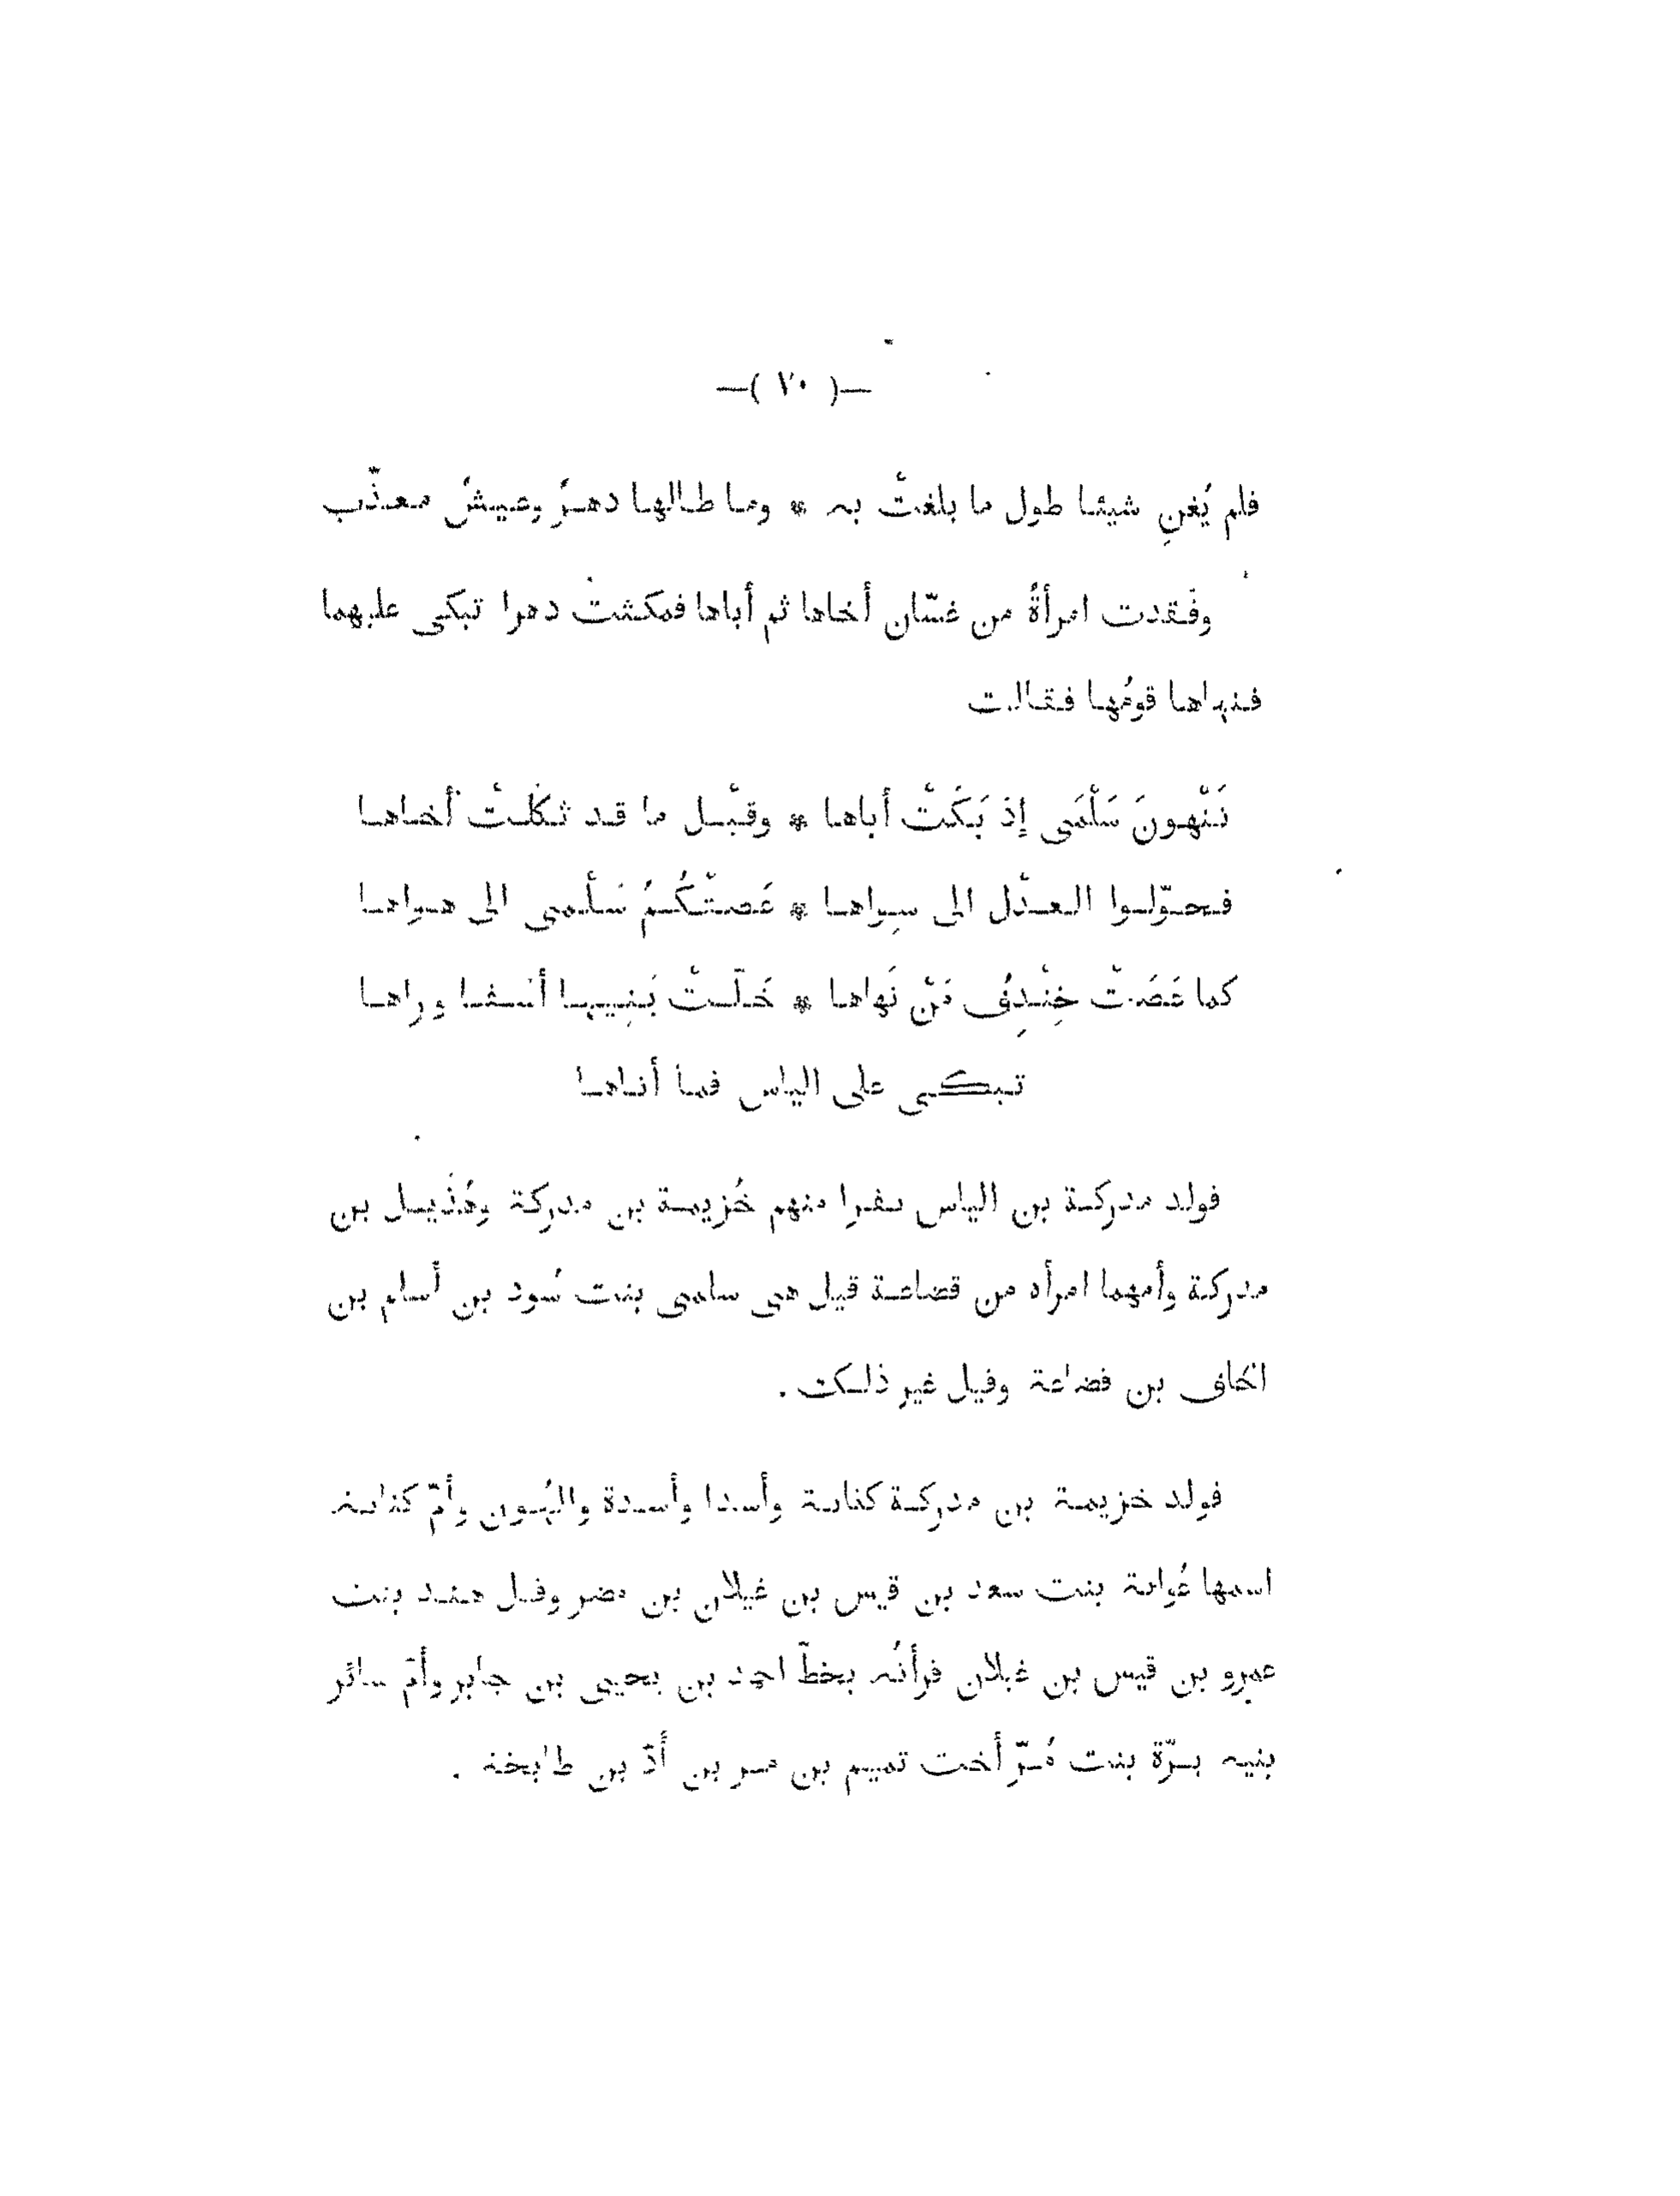 —( ٧٠ )—
فلم يُغنِ شيئا طول ما بلغتْ به * وما طالها دهرٌ وعيشٌ معذّب
وفَقدت امرأةٌ من غسّان أخاها ثم أباها فمكثتْ دهرا تبكى عليهما
فنهاها قومُها فقالت
تَنْهونَ سَلْمَى إذْ بَكَتْ أباها * وقبْل ما قد ثكلتْ أخاها
فحوّلوا العدْل الى سِواها * عَصتْكُمُ سَلْمى الى هواها
كما عَصَتْ خِنْدِفُ مَنْ نَهاها * خَلّتْ بَنِيها أسفا وراها
تبكى على الياس فما أتاها
فولد مدركة بن الياس نفرا منهم خُزيمة بن مدركة وهُذَيل بن
مدركة وأمهما امرأه من قضاعة قيل هى سلمى بنت سُود بن أسلم بن
الحَاف بن قضاعة وقيل غير ذلك .
فولد خزيمة بن مدركة كنانة وأسدا وأسدة والهُون وأمّ كنانة
اسمها عُوانة بنت سعد بن قيس بن غيلان بن مضر وقيل هند بنت
عمرو بن قيس بن غيلان قرأتُه بخطّ احمد بن يحيى بن جابر وأمّ سائر
بنيه برّة بنت مُرّ أخت تميم بن مر بن أُدّ بن طابخة .